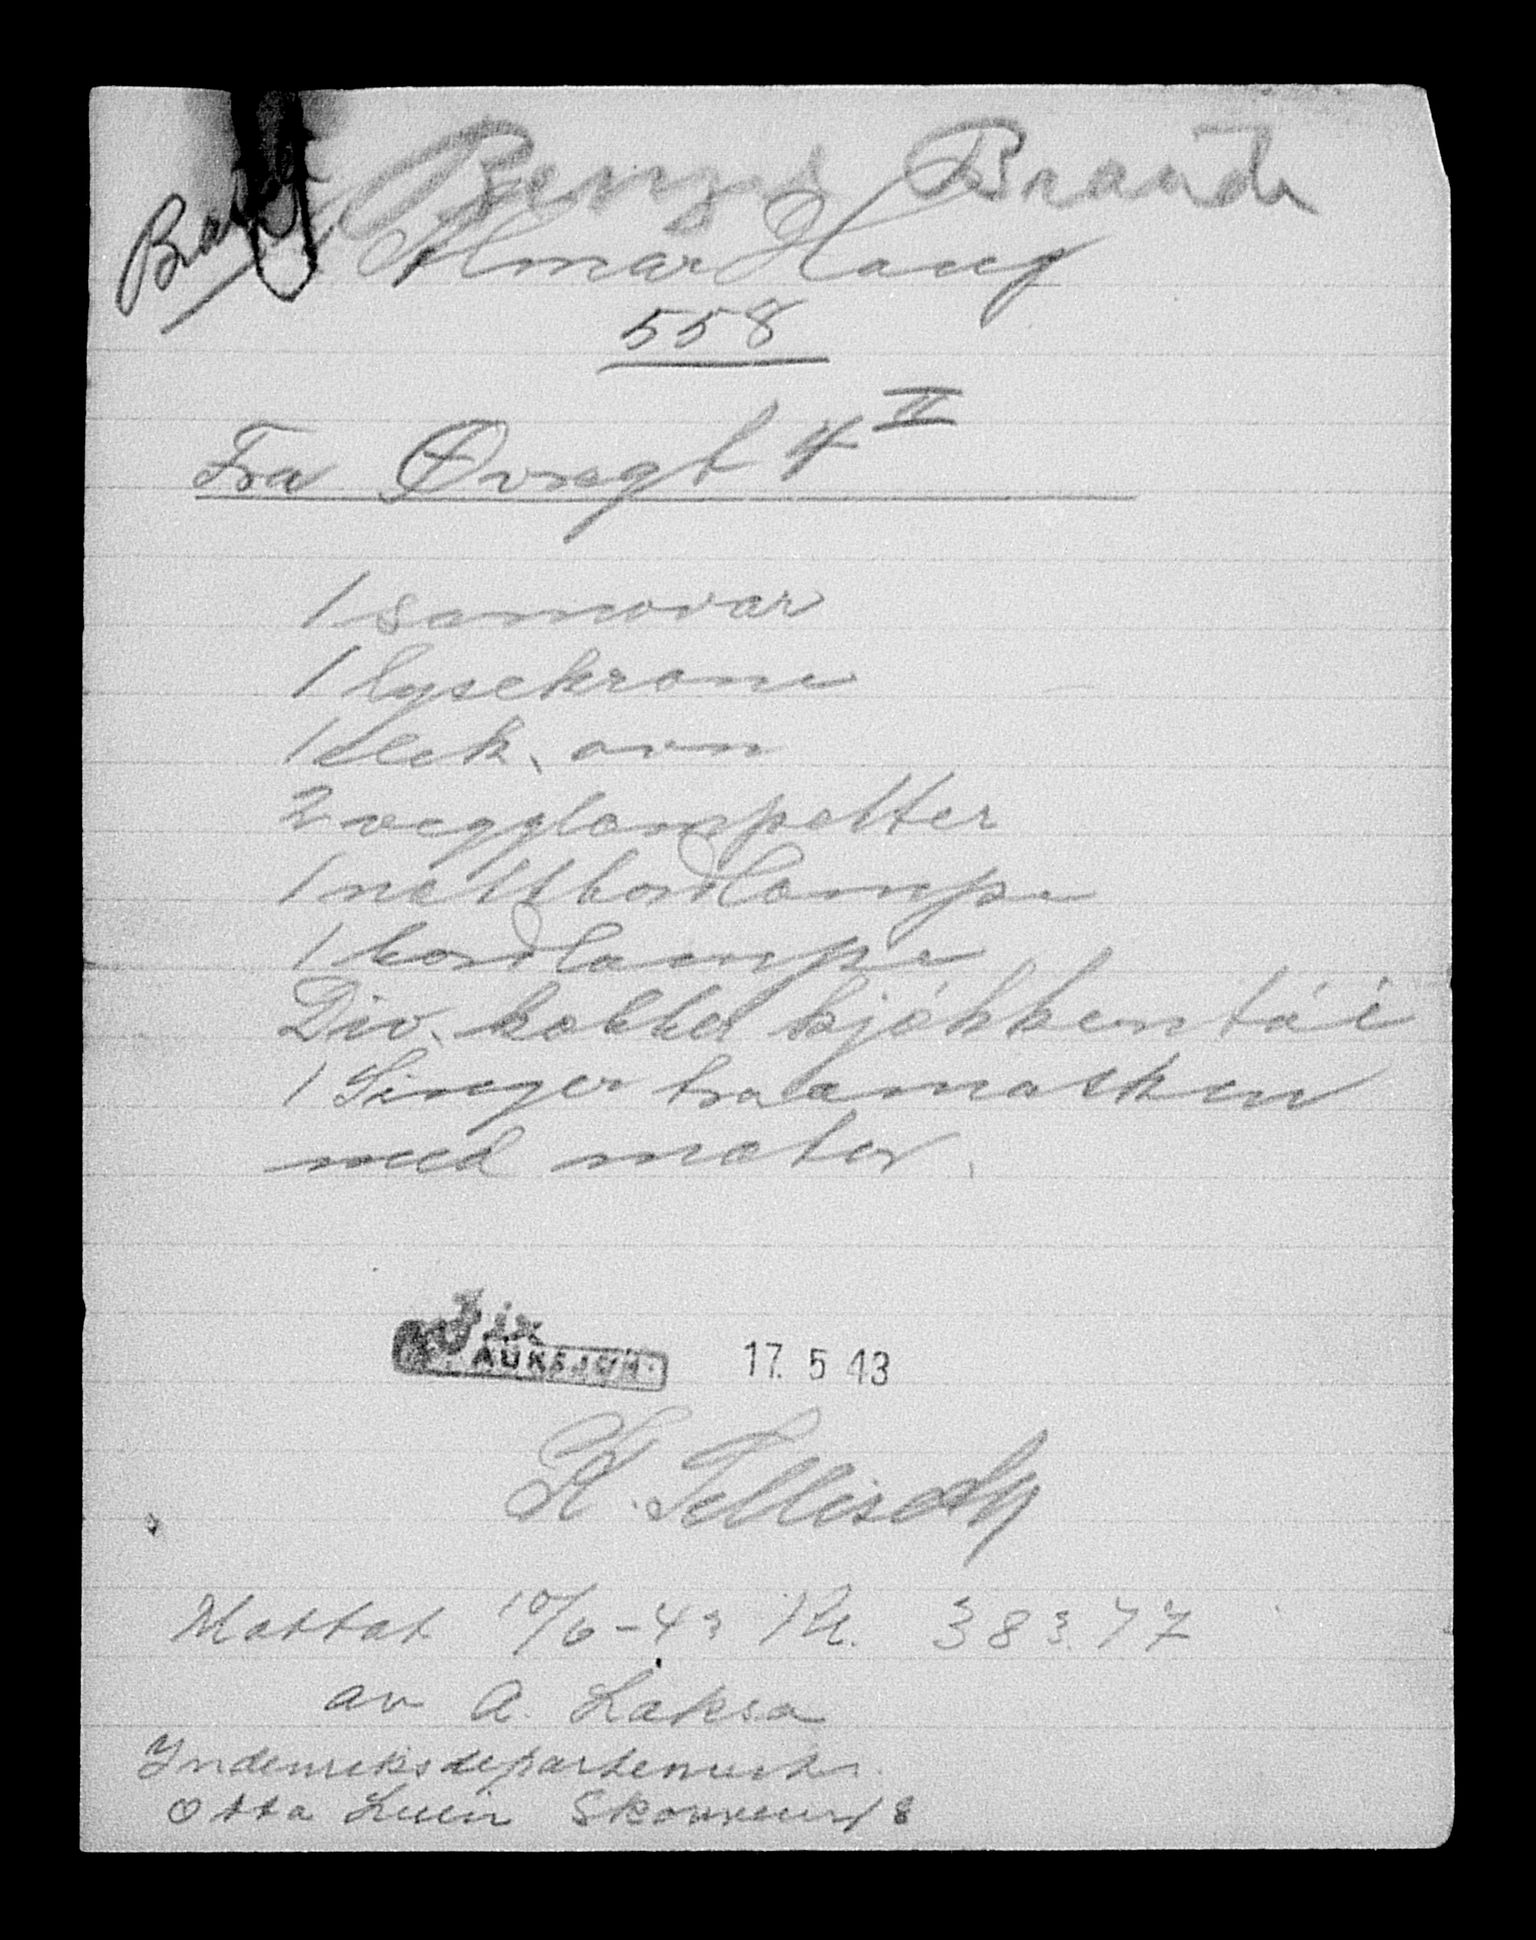 Brandt
Benzs Brandt
Almar Haug
558
Fra Øvregt 4 II
1 samovar
1 lysekrone
1 elek. ovn
2 vegglampetter
1 nattbordlampe
1 bordlampe
Div. kobbel kjøkkentøi
1 Singer
med motor.
AUKSJON
17. 5 43
Mottat 10/6-43 Kr. 383.77
av A. Laksa
Indenriksdepartementet
Otta